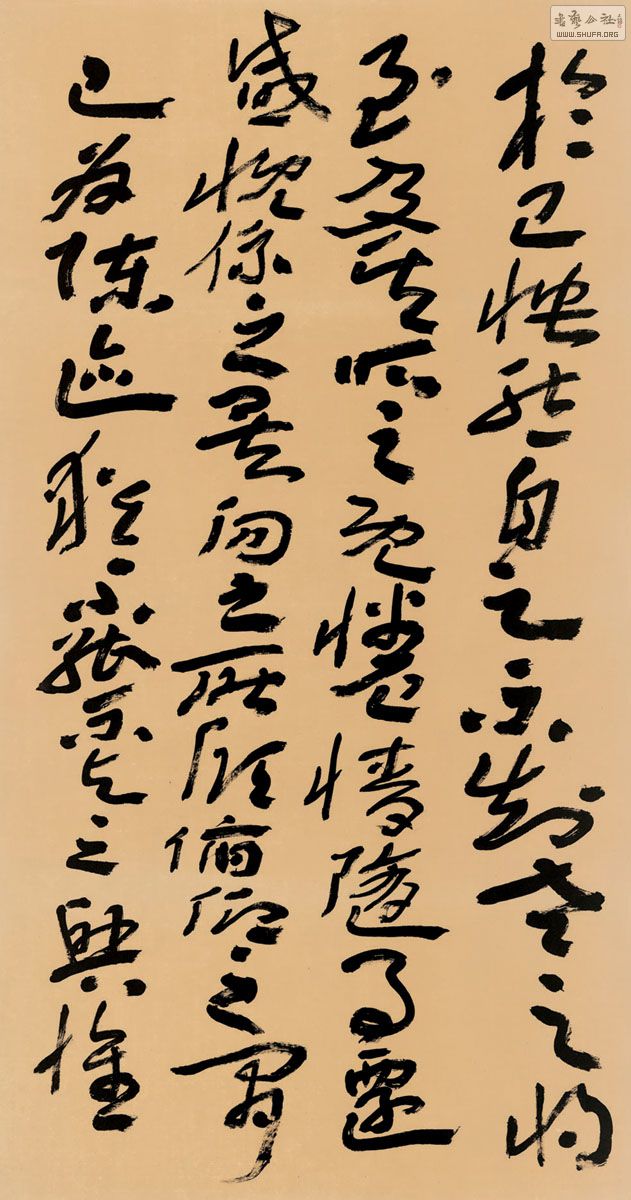 於己怏然自足不知老之將
至及其所之既惓情隨事遷
感慨係之矣向之所欣俯仰之間
已為陳迹猶不能不以之興懷
書藝公社
WWW.SHUFA.ORG